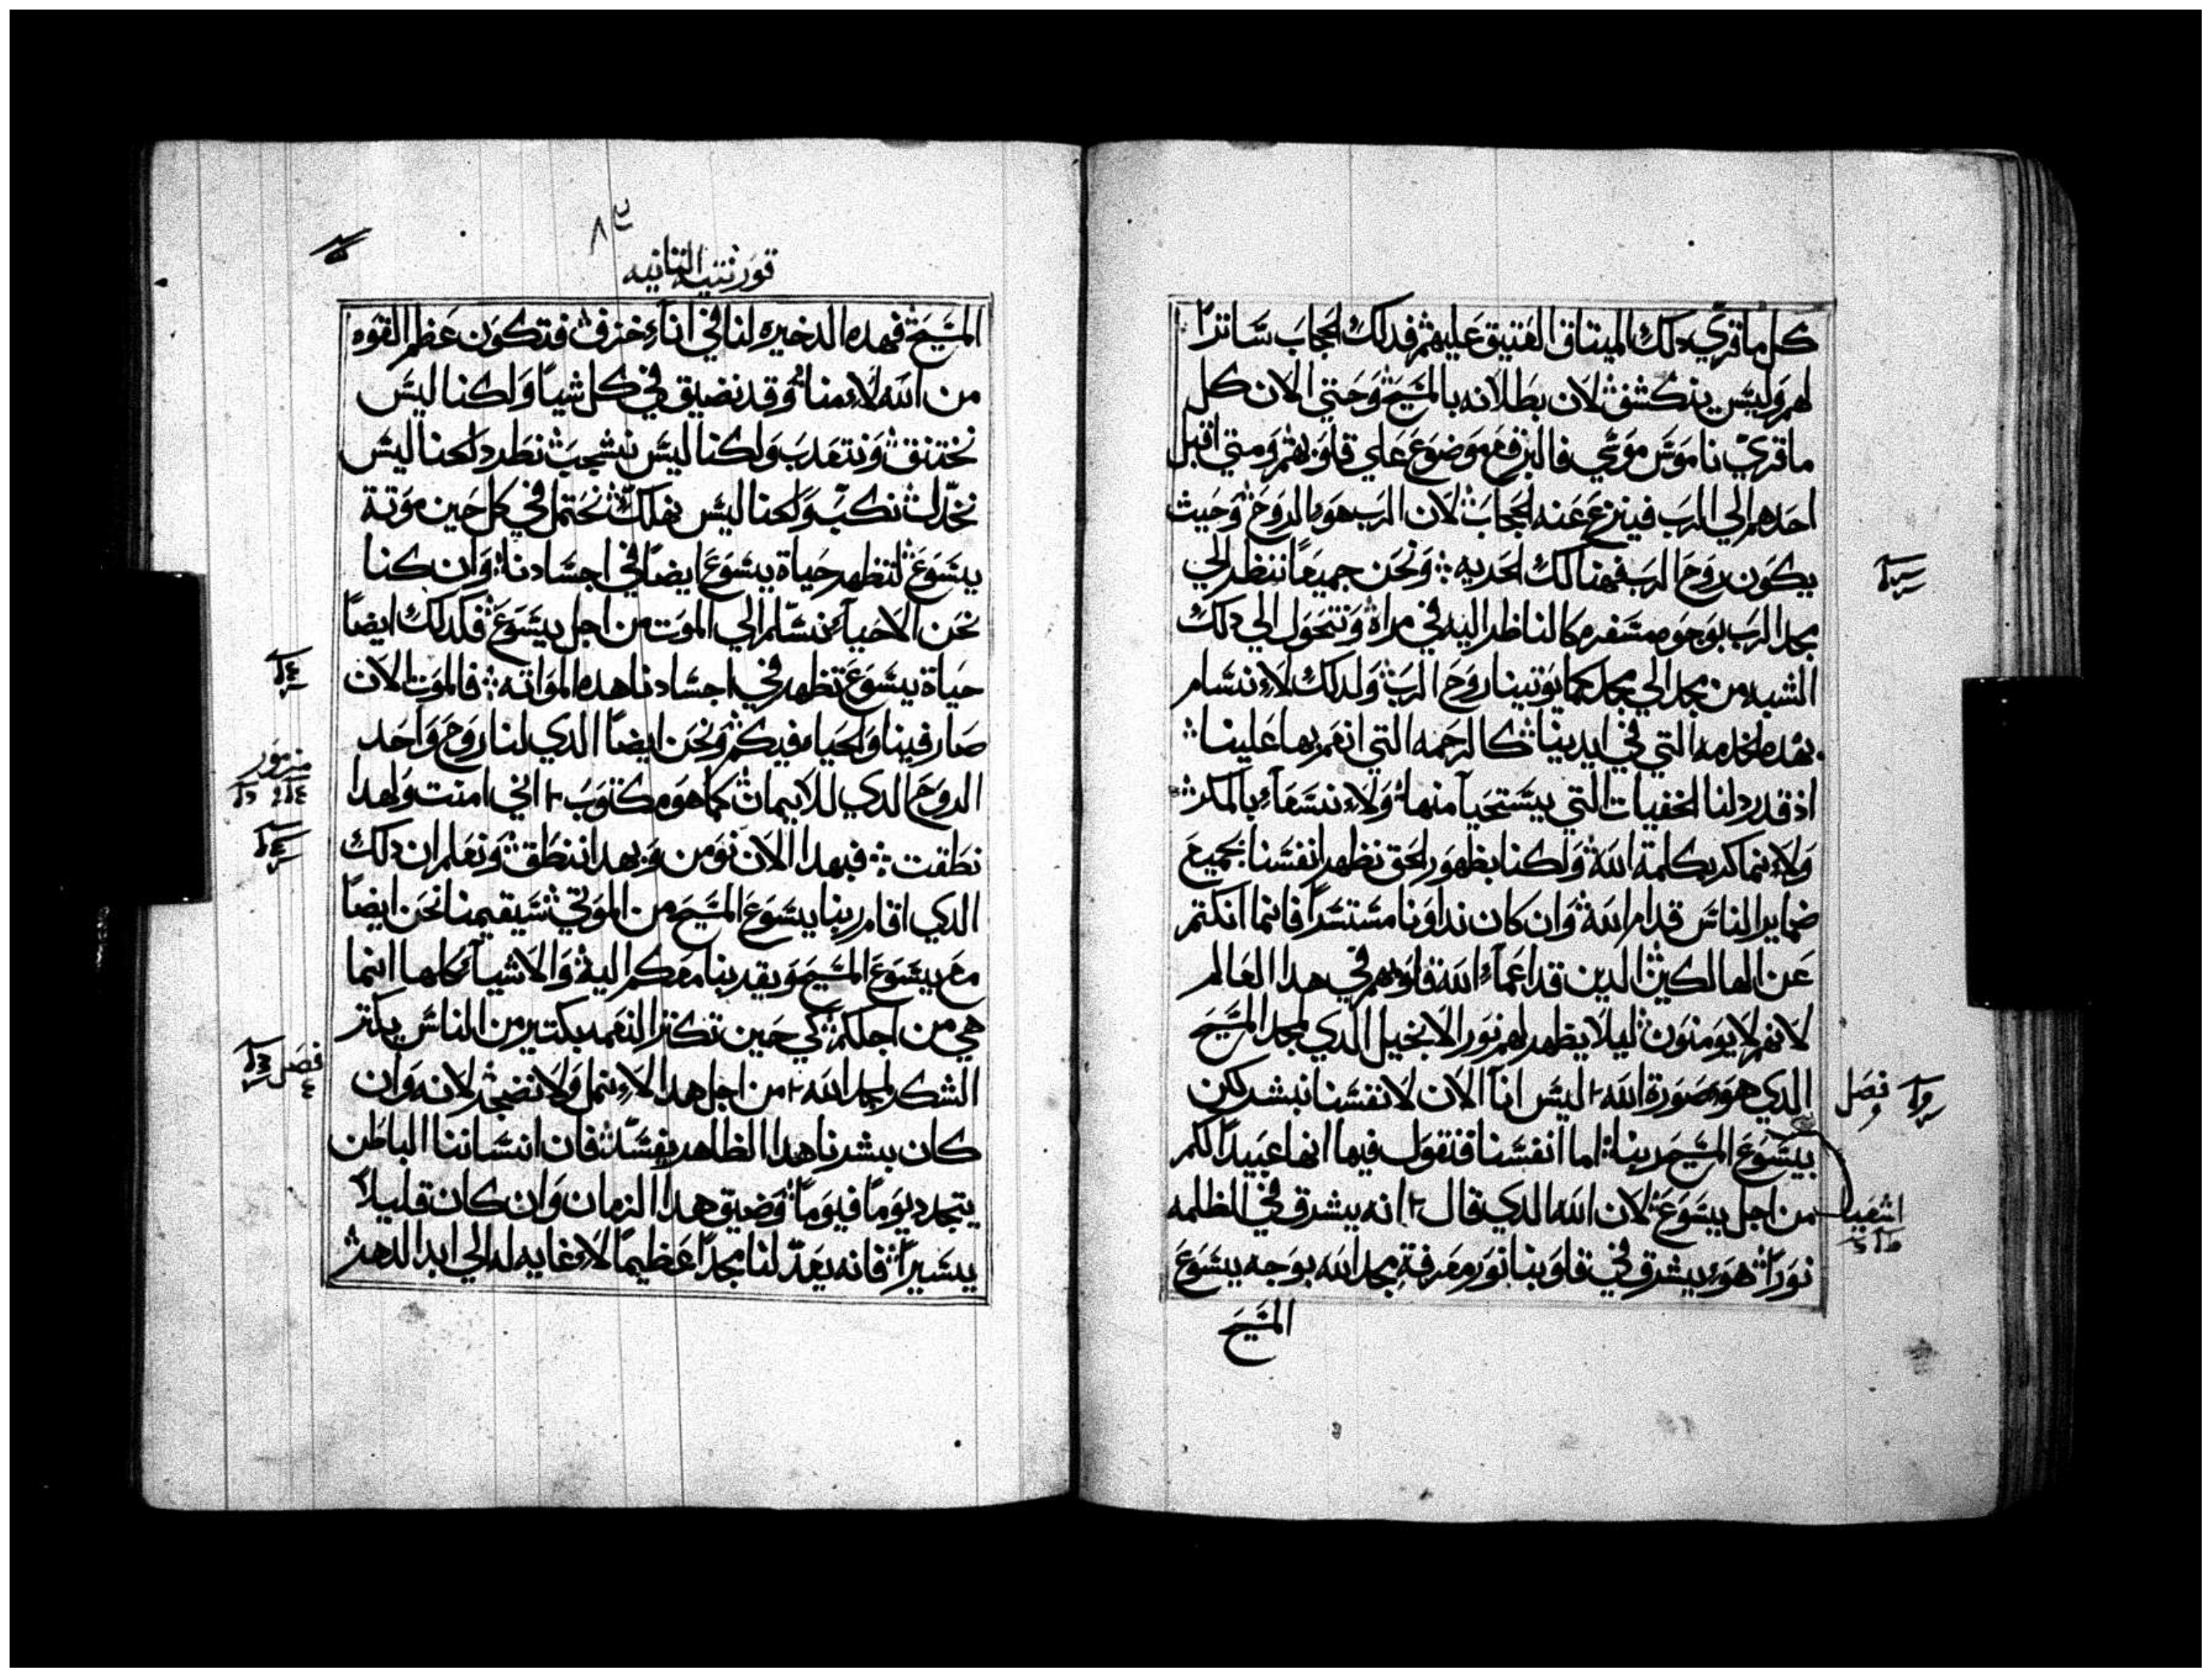 كل ما قري دلك الميتاق العتيق عليهم فدلك الحجاب ساترا
لهم وليس ينكشف لان بطلانه بالمسيح وحتي الان كل
ما قري ناموس موسي فالبرقع موضوع علي قلوبهم ومتي اقبل
احدهم الي الرب فينزع عنه الحجاب لان الرب هو الروح وحيث
يكون روح الرب فهنالك الحريه ونحن جميعا ننظر الي
مجد الرب بوجوه مسفره كالناظر اليه في مراة ونتحول الي دلك
الشبه من مجد الي مجد كما يوتينا روح الرب ولدلك لا نسام
بهده الخدمه التي في ايدينا كالرحمه التي انعم بها علينا
اذ قد ردلنا الخفيات التي يستحيا منها ولا نسعاء بالمكر
ولا نماكر بكلمة الله ولكنا بظهور الحق نظهر انفسنا لجميع
ضماير الناس قدام الله وان كان نداونا مستترا فانما انكتم
عن الهالكين الدين قد اعماء الله قلوبهم في هدا العالم
لانهم لا يومنون ليلا يظهر لهم نور الانجيل الدي لمجد المسيح
الدي هو صورة الله ليس انا الان لانفسنا نبشر لكن
يسوع المسيح ربنا اما انفسنا فنقول فيها انها عبيدا لكم
من اجل يسوع لان الله الدي قال انه يشرق في الظلمه
نورا هو يشرق في قلوبنا نور معرفة مجد الله بوجه يسوع
المسيح
فصل
اشعيا
قورنتيه التانيه
المسيح فهده الدخيره لنا في اناء خزف فتكون عظم القوه
من الله لا منا وقد نضيق في كل شيا ولكنا ليس
نختنق ونتعدب ولكنا ليس نشجب نطرد لكنا ليس
نخدل نكب ولكنا ليس نهلك نحتمل في كل حين موتة
يسوع لتظهر حياة يسوع ايضا في اجسادنا وان كنا
نحن الاحياء نسلم الي الموت من اجل يسوع فكدلك ايضا
حياة يسوع تظهر في اجسادنا هده المواته فالموت الان
صار فينا والحياه فيكم ونحن ايضا الدي لنا روح واحد
الروح الدي للايمان كما هو مكتوب اني امنت ولهدا
نطقت فبهدا الان نومن وبهدا ننطق ونعلم ان دلك
الدي اقام ربنا يسوع المسيح من الموتي سيقيمنا نحن ايضا
مع يسوع المسيح ويقربنا معكم اليه والاشياء كلها انما
هي من اجلكم كي حين تكتر النعمه بكتير من الناس يكتر
الشكر لمجد الله من اجل هدا لا نمل ولا نضجر لانه وان
كان بشرنا هدا الظاهر يفسد فان انساننا الباطن
يتجدد يوما فيوما وضيق هدا الزمان وان كان قليلا
يسيرا فانه يعد لنا مجدا عظيما لا غايه له الي ابد الدهر
مزمور
فصل